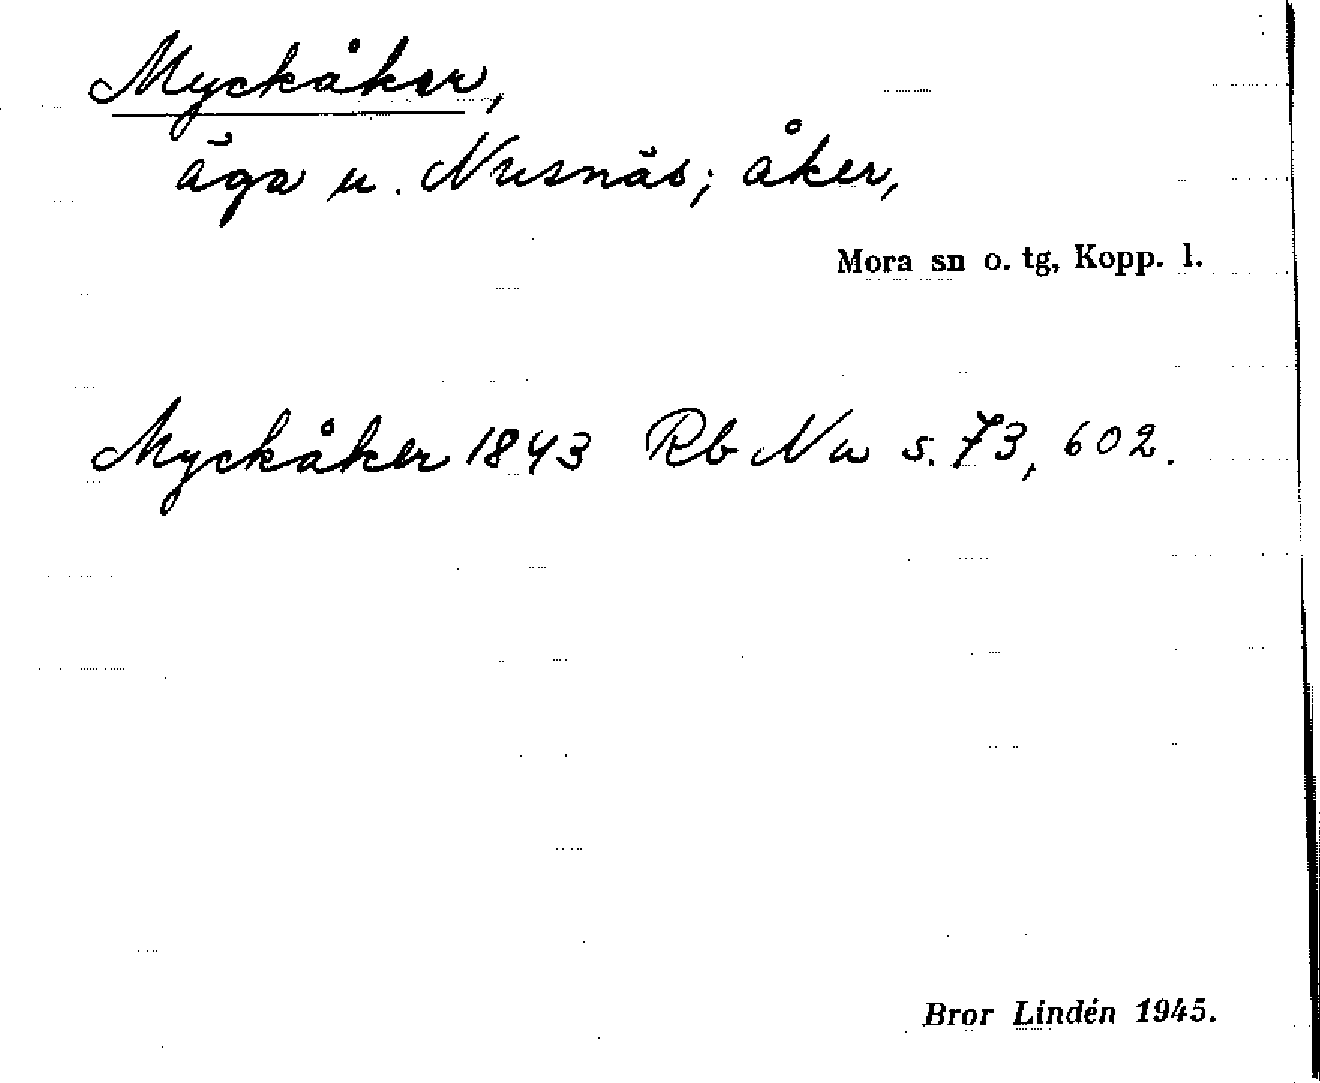 Myckåker,
äga u. Nusnäs; åker,
Mora sn o. tg, Kopp. l.
Myckåker 1843 Rb Nu s. 73, 602.
Bror Lindén 1945.